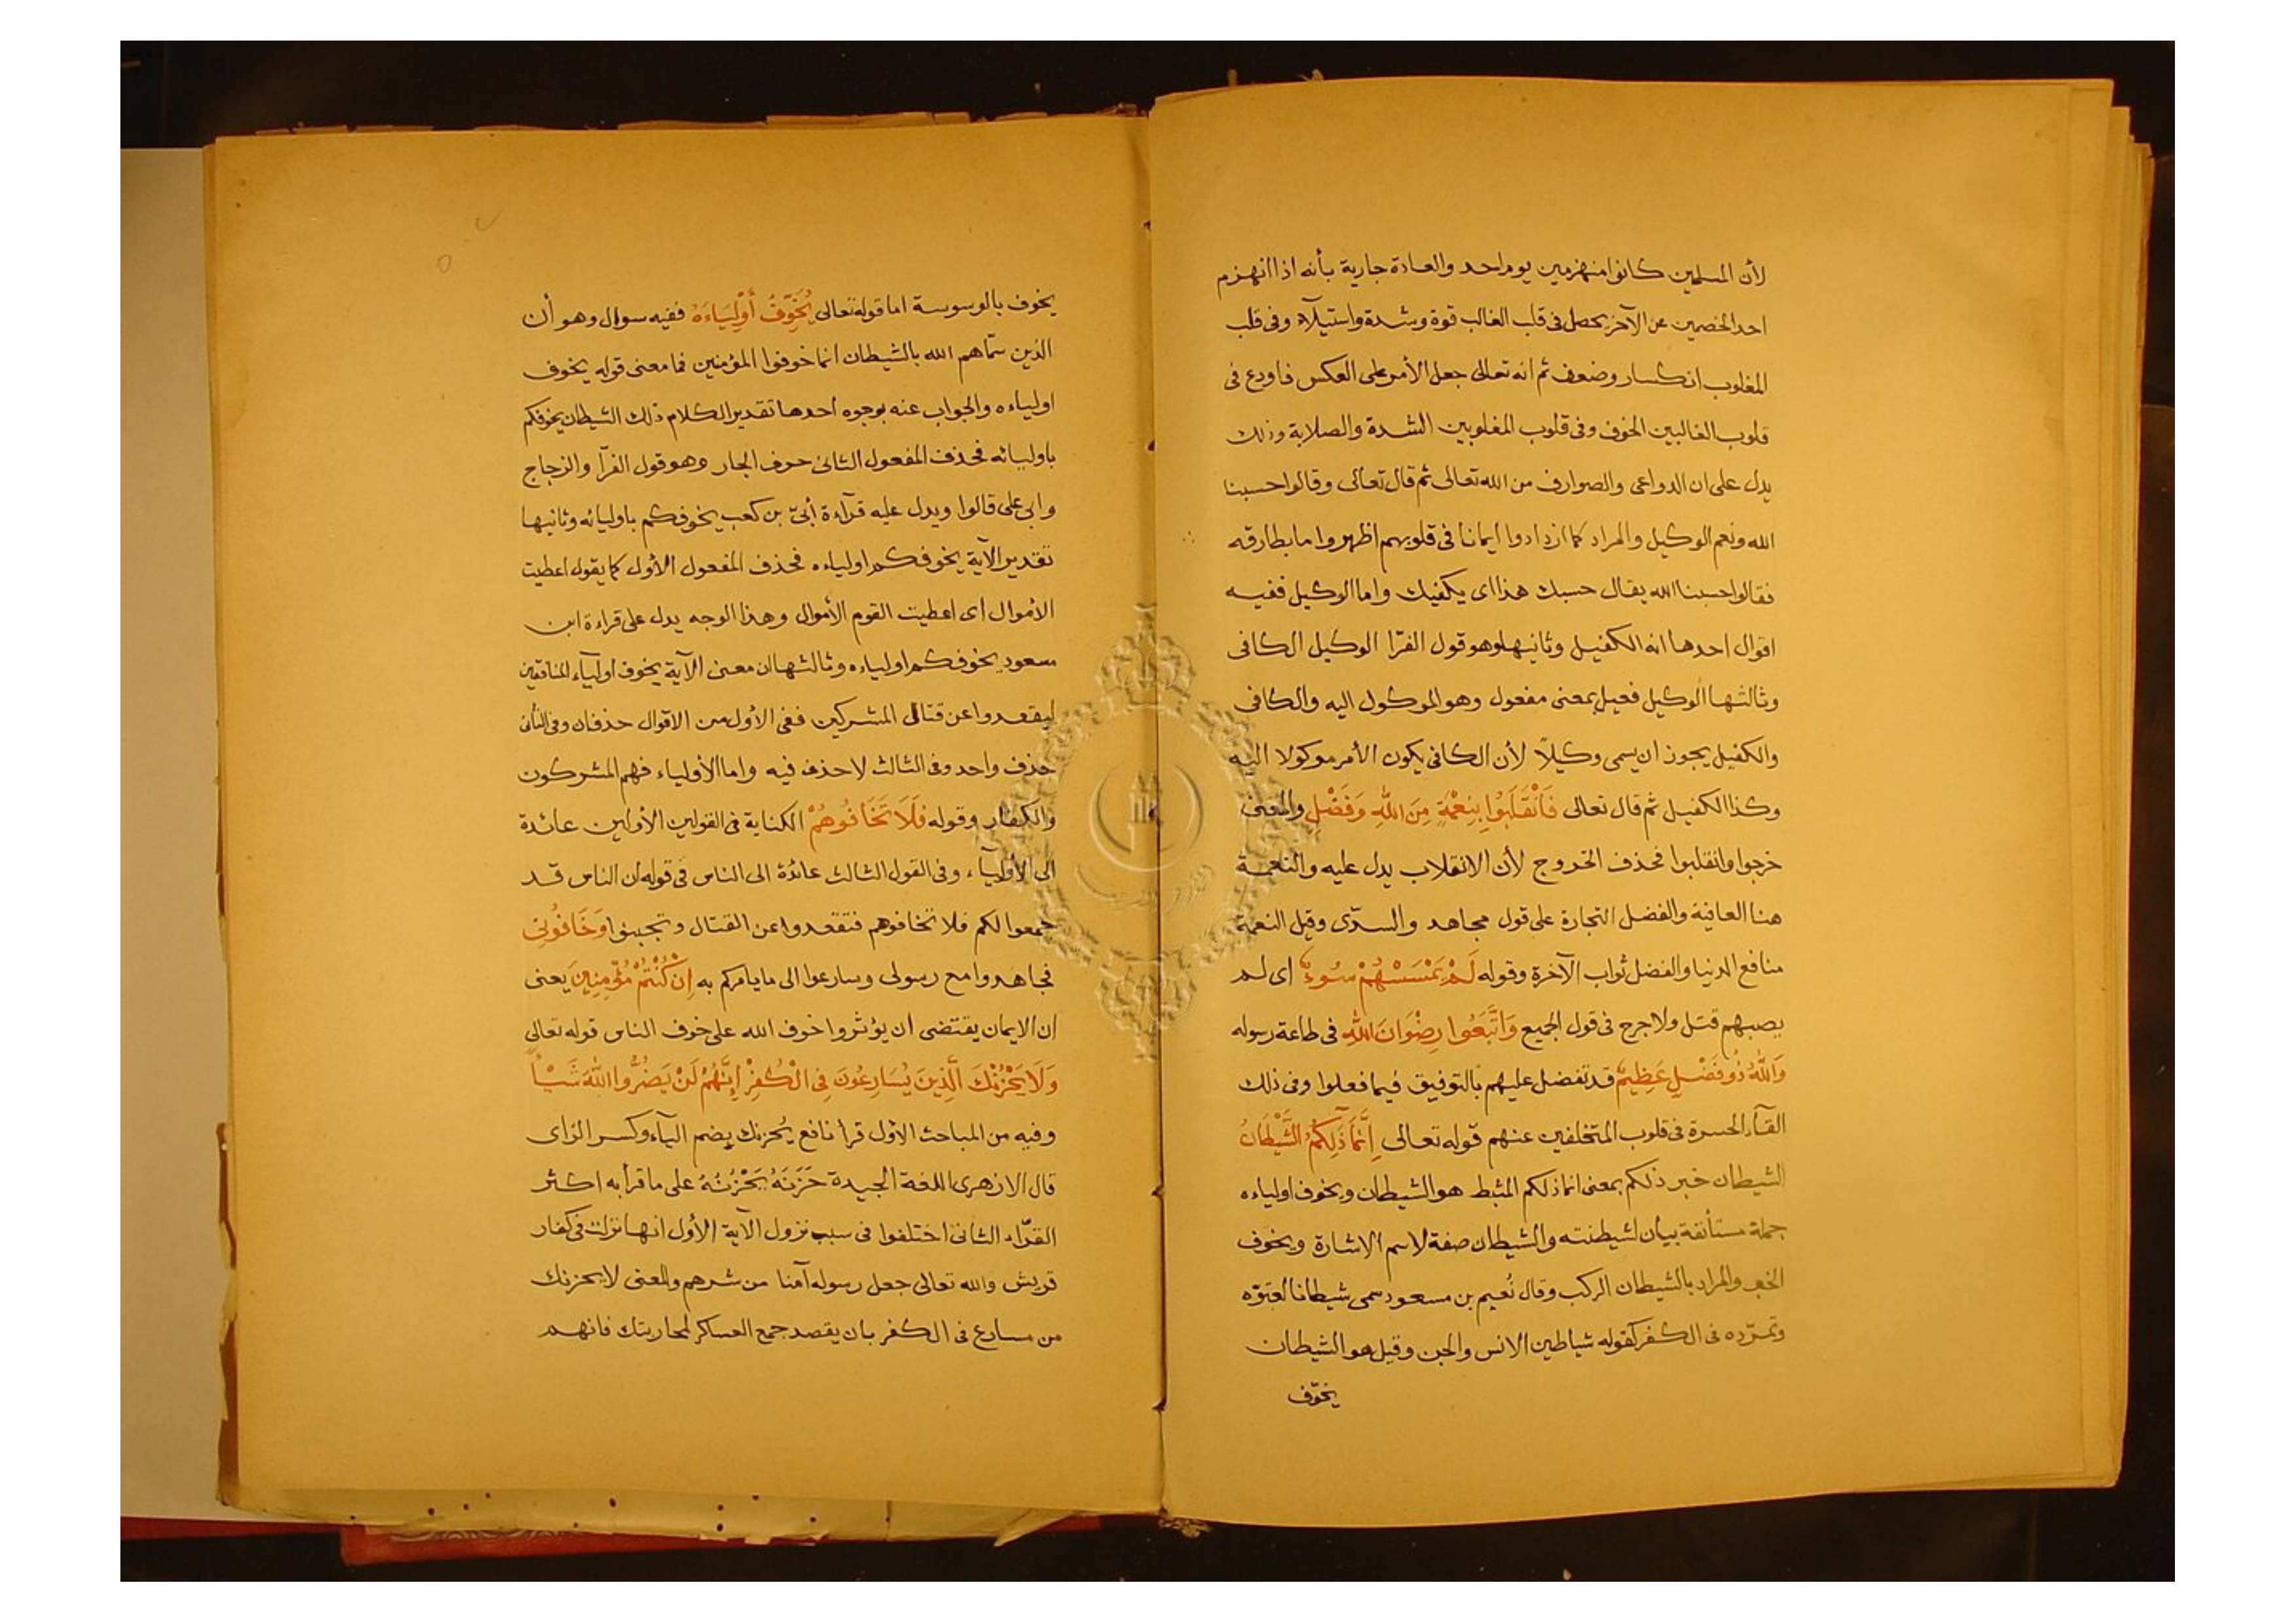 لأن المسلمين كانوا منهزمين يوم احد والعادة جارية بأنه اذا انهزم
احد الخصمين عن الآخر يحصل فى قلب الغالب قوة وشدة واستيلآء وفى قلب
المغلوب انكسار وضعف ثم انه تعالى جعل الأمر على العكس فاودع فى
قلوب الغالبين الخوف وفى قلوب المغلوبين الشدة والصلابة وذلك
يدل على ان الدواعى والصوارف من الله تعالى ثم قال تعالى وقالوا حسبنا
الله ونعم الوكيل والمراد كما ازدادوا ايمانا فى قلوبهم اظهروا ما بطارقه
فقالوا حسبنا الله يقال حسبك هذا اى يكفيك واما الوكيل ففيه
اقوال احدها انه الكفيل وثانيها وهو قول الفرّا الوكيل الكافى
وثالثها الوكيل فعيل بمعنى مفعول وهو الموكول اليه والكافى
والكفيل يجوز ان يسمى وكيلًا لأن الكافى يكون الأمر موكولا اليه
وكذا الكفيل ثم قال تعالى فَأنْقَلَبُوا بِنِعْمَةٍ مِنَ اللهِ وَفَضْلٍ والمعنى
خرجوا وانقلبوا فحذف الخروج لأن الانقلاب يدل عليه والنعمة
هنا العافية والفضل التجارة على قول مجاهد والسدّى وقيل النعمة
منافع الدنيا والفضل ثواب الآخرة وقوله لَمْ يَمْسَسْهُمْ سُوءٌ اى لم
يصبهم قتل ولا جرح فى قول الجميع وَاتَّبَعُوا رِضْوَانَ اللهِ فى طاعة رسوله
وَاللهُ ذُو فَضْلٍ عَظِيمٍ قد تفضل عليهم بالتوفيق فيما فعلوا وفى ذلك
القآء الحسرة فى قلوب المتخلفين عنهم قوله تعالى إِنَّمَا ذَلِكُمُ الشَّيْطَانُ
الشيطان خبر ذلكم بمعنى انما ذلكم المثبط هو الشيطان ويخوف اولياءه
جملة مستأنفة بيان لشيطنته والشيطان صفة لاسم الاشارة ويخوف
الخبر والمراد بالشيطان الركب وقال نُعيم بن مسعود سمى شيطانا لعتوّه
وتمرّده فى الكفر كقوله شياطين الانس والجن وقيل هو الشيطان
يخوّف
يخوف بالوسوسة اما قوله تعالى يُخَوِّفُ أَوْلِيَاءَهُ ففيه سوال وهو أن
الذين سمّاهم الله بالشيطان انما خوفوا المؤمنين فما معنى قوله يخوف
اولياءه والجواب عنه بوجوه احدها تقدير الكلام ذلك الشيطان يخوفكم
باوليائه فحذف المفعول الثانى حرف الجار وهو قول الفرّآ والزجاج
وابى على قالوا ويدل عليه قرآءة أبىّ بن كعب يخوفكم باوليائه وثانيها
تقدير الآية يخوفكم اولياءه فحذف المفعول الأول كما يقول اعطيت
الأموال اى اعطيت القوم الأموال وهذا الوجه يدل على قراءة ابن
مسعود يخوفكم اولياءه وثالثها ان معنى الآية يخوف اوليآء المنافقين
ليقعدوا عن قتال المشركين ففى الأول من الاقوال حذفان وفى الثانى
حذف واحد وفى الثالث لا حذف فيه واما الأولياء فهم المشركون
والكفار وقوله فَلَا تَخَافُوهُمْ الكناية فى القولين الأولين عائدة
الى الأوليآء وفى القول الثالث عائدة الى الناس فى قوله ان الناس قد
جمعوا لكم فلا تخافوهم فتقعدوا عن القتال وتجبنوا وَخَافُونِى
فجاهدوا مع رسولى وسارعوا الى ما يامركم به إِنْ كُنْتُمْ مُؤْمِنِينَ يعنى
ان الايمان يقتضى ان يؤثروا خوف الله على خوف الناس قوله تعالى
وَلَا يَحْزُنْكَ الَّذِينَ يُسَارِعُونَ فِى الْكُفْرِ إِنَّهُمْ لَنْ يَضُرُّوا اللهَ شَيْـأً
وفيه من المباحث الأول قرأ نافع يُحزنك بضم اليآء وكسر الزاى
قال الازهرى اللغة الجيدة حَزَنَهُ يَحْزُنُهُ على ما قرأ به اكثر
القرّاء الثانى اختلفوا فى سبب نزول الآية الأول انها نزلت فى كفار
قريش والله تعالى جعل رسوله آمنا من شرهم والمعنى لا يحزنك
من مسارع فى الكفر بان يقصد جمع العساكر لمحاربتك فانهم